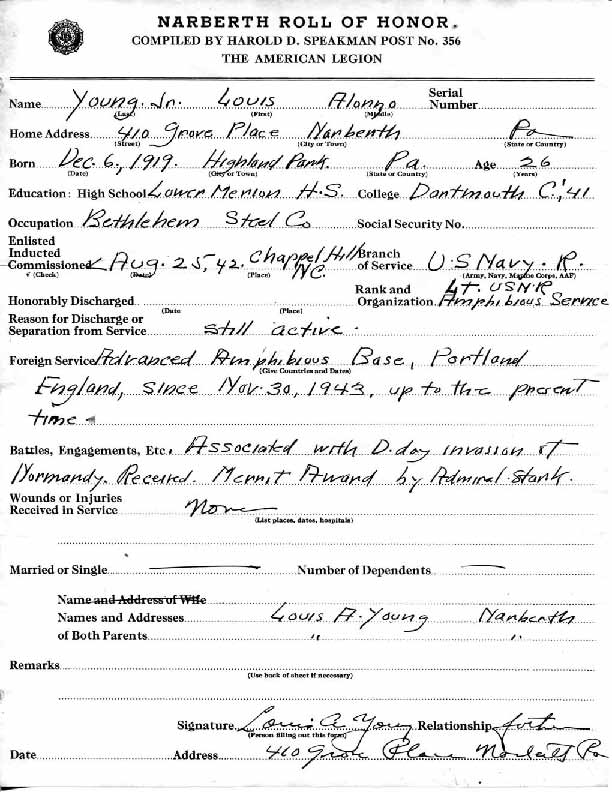 NARBERTH ROLL OF HONOR
COMPILED BY HAROLD D. SPEAKMAN POST No. 356
THE AMERICAN LEGION
Name Young, Jr. Louis Alonzo Serial Number
(Last) (First) (Middle)
Home Address 410 Grove Place Narberth Pa
(Street) (City or Town) (State or Country)
Born Dec. 6, 1919. Highland Park. Pa. Age 26
(Date) (City or Town) (State or Country) (Years)
Education: High School Lower Merion H.S. College Dartmouth C. '41
Occupation Bethlehem Steel Co Social Security No.
Enlisted
Inducted
Commissioned ✓ Aug. 25, 42. Chappel Hill NC. Branch of Service U.S Navy. R.
√ (Check) (Date) (Place) (Army, Navy, Marine Corps, AAF)
Honorably Discharged Rank and Organization Lt. USNR Amphibious Service
(Date (Place)
Reason for Discharge or
Separation from Service still active.
Foreign Service Advanced Amphibious Base, Portland
(Give Countries and Dates)
England, since Nov. 30, 1943, up to the present
time
Battles, Engagements, Etc. Associated with D-day invasion of
Normandy. Received Merrit Award by Admiral Stark.
Wounds or Injuries
Received in Service None
(List places, dates, hospitals)
Married or Single Number of Dependents
Name and Address of Wife
Names and Addresses Louis A. Young Narberth
of Both Parents " "
Remarks
(Use back of sheet if necessary)
Signature Louis A Young Relationship father
(Person filling out this form)
Date Address 410 Grove Place Narberth Pa